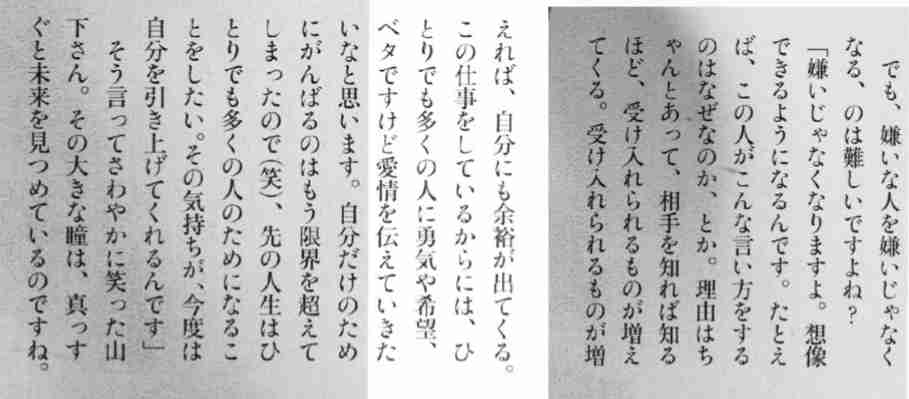 でも、嫌いな人を嫌いじゃなく
なる、のは難しいですよね?
「嫌いじゃなくなりますよ。想像
できるようになるんです。たとえ
ば、この人がこんな言い方をする
のはなぜなのか、とか。理由はち
ゃんとあって、相手を知れば知る
ほど、受け入れられるものが増え
てくる。受け入れられるものが増
えれば、自分にも余裕が出てくる。
この仕事をしているからには、ひ
とりでも多くの人に勇気や希望、
ベタですけど愛情を伝えていきた
いなと思います。自分だけのため
にがんばるのはもう限界を超えて
しまったので(笑)、先の人生はひ
とりでも多くの人のためになるこ
とをしたい。その気持ちが、今度は
自分を引き上げてくれるんです」
そう言ってさわやかに笑った山
下さん。その大きな瞳は、真っす
ぐと未来を見つめているのですね。